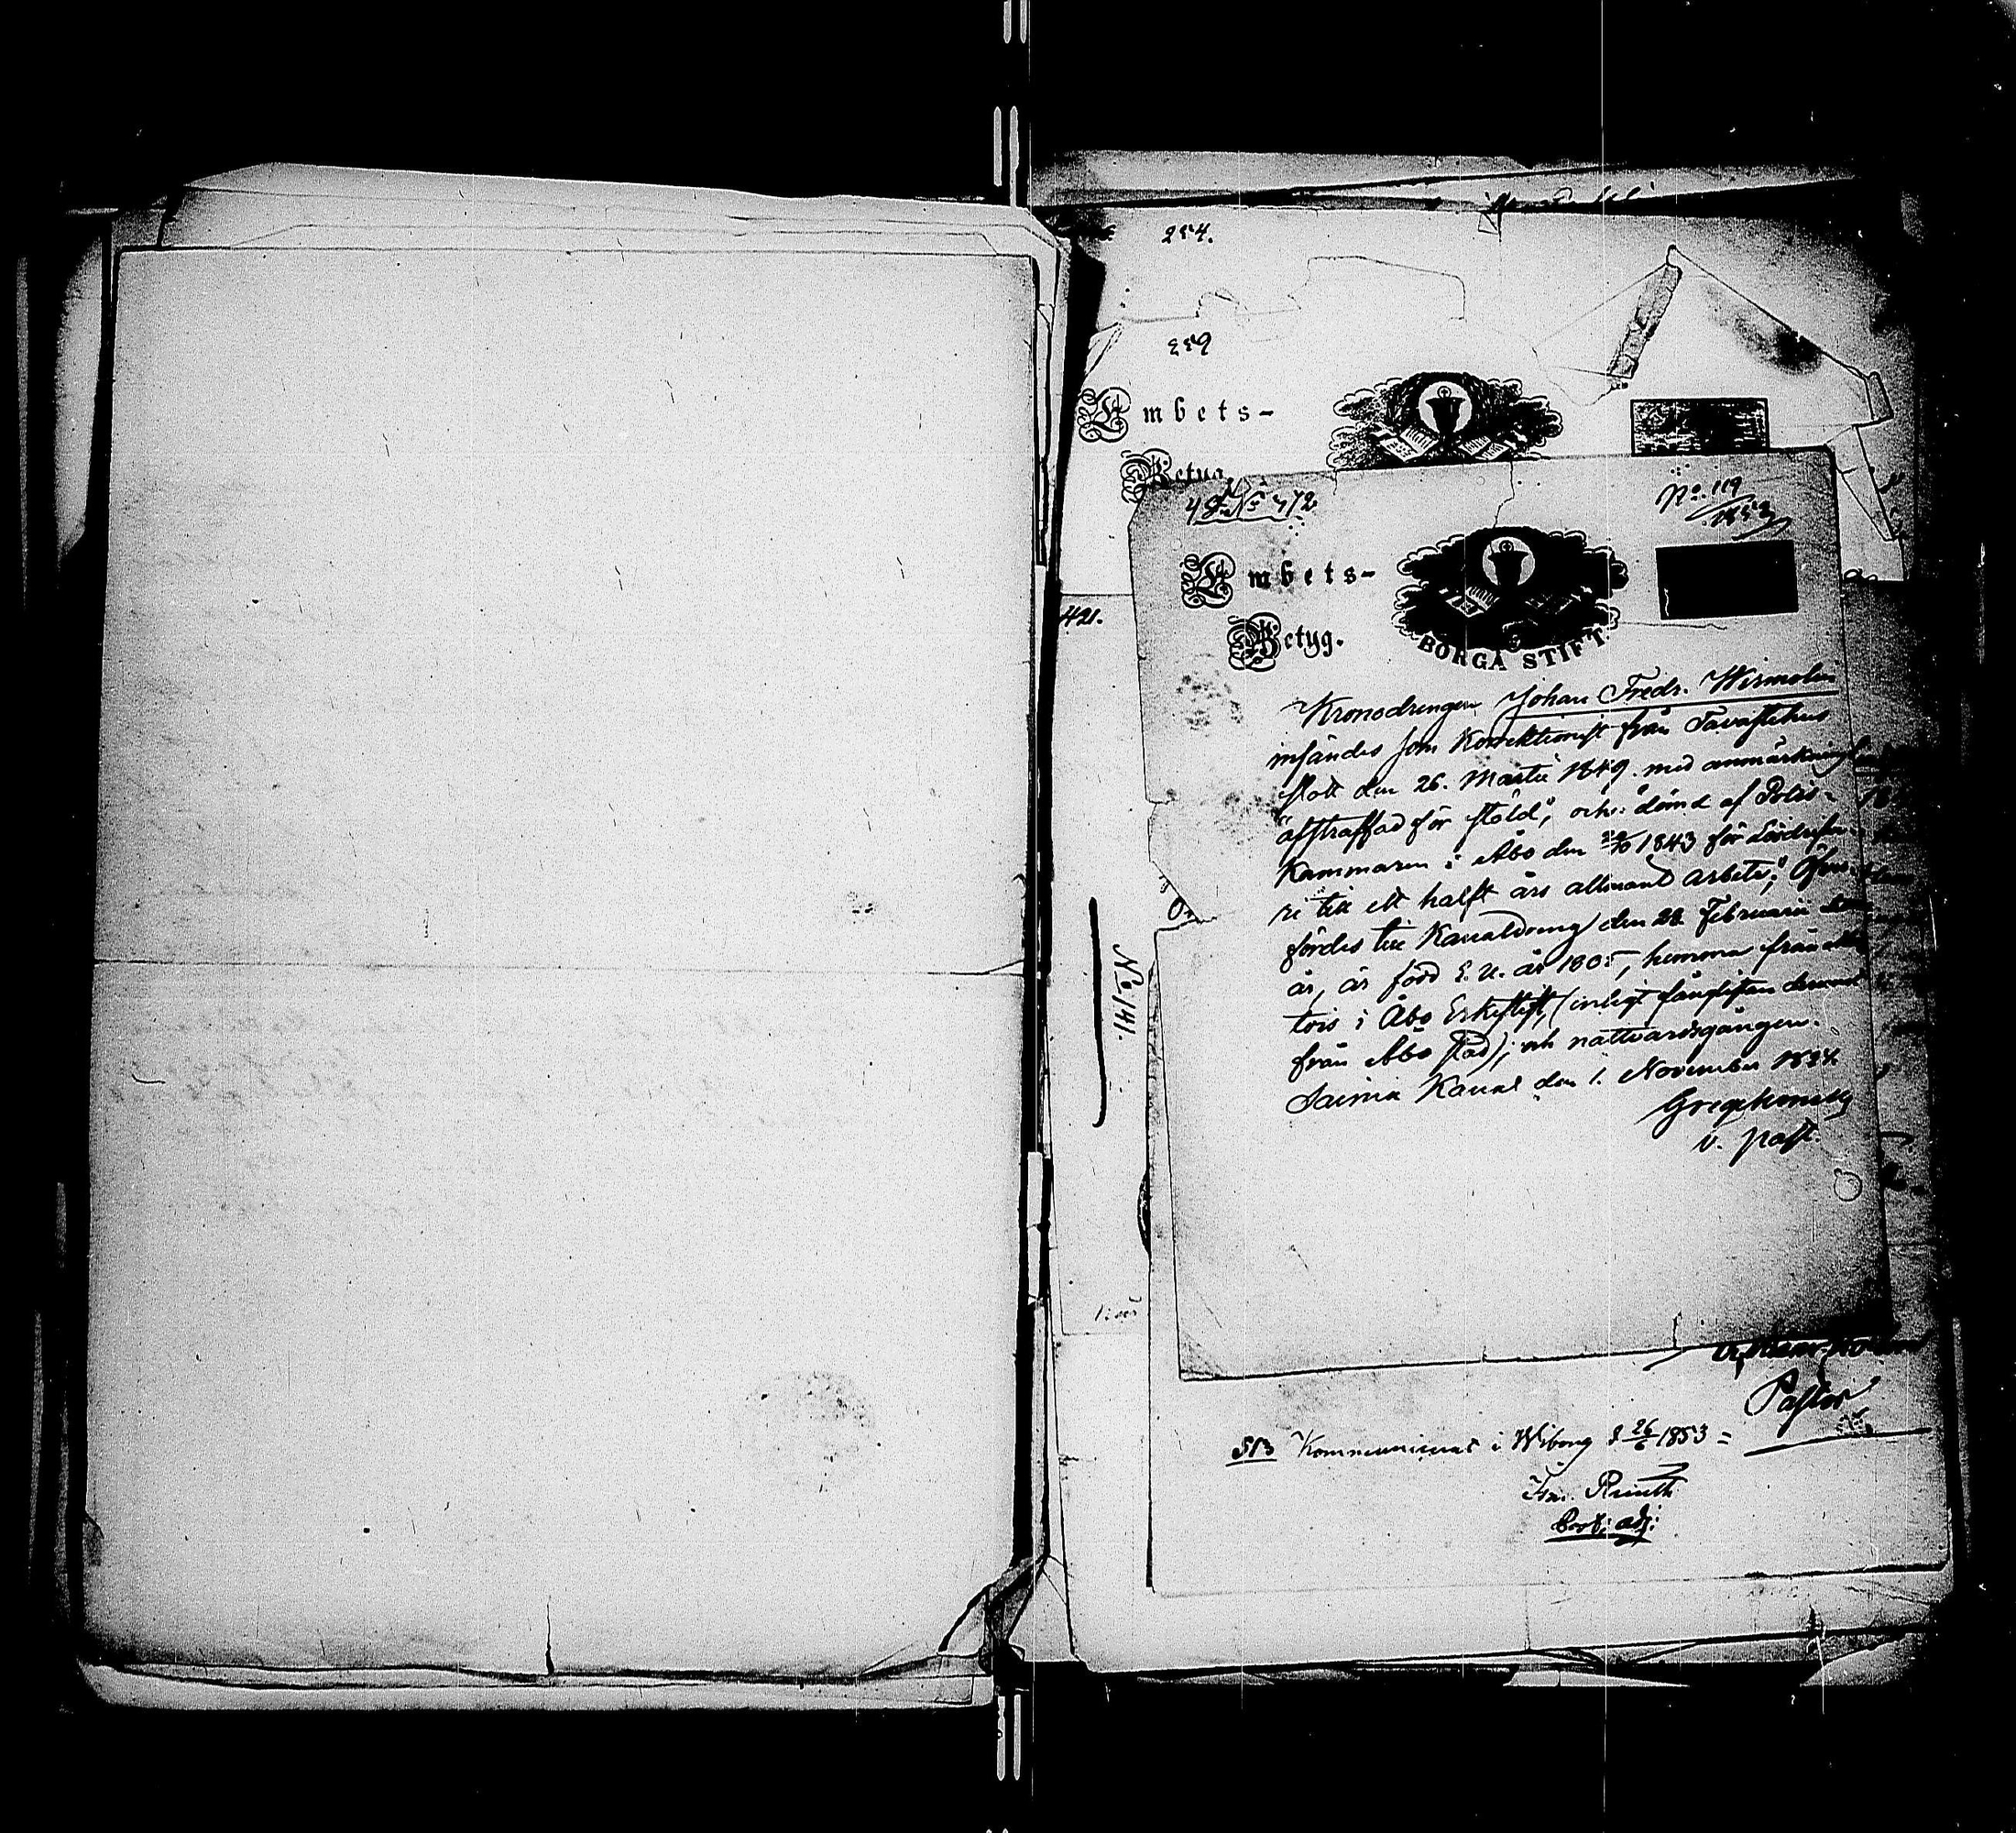 254.
259
Embets-
Betyg.
48 No 412
No. 119
1853
Embets-
Betyg.
BORGÅ STIFT
421.
Kronodrengen Johan Fredr. Wirmolin
insändes som Korrektionist från Tavastehus
slott den 26. Martii 1849. med anmärkning
afstraffad för stöld", och: "dömd af Polis-
Kammaren i Åbo den 1843 för Lösdrifve-
ri till ett halft års allmänt arbete;" Öfver-
fördes till Kanaldreng den 28 Februarii
år, är född E. u. år 1805, hemma från
tois i Åbo Erkestift, (enligt fånglistan
från Åbo stad); och nattvardsgången.
Saima Kanal den 1. November
v. past.
No. 141.
Pastor
513 Kommunicerat i Wiborg d 26/6 1853 =
adj: